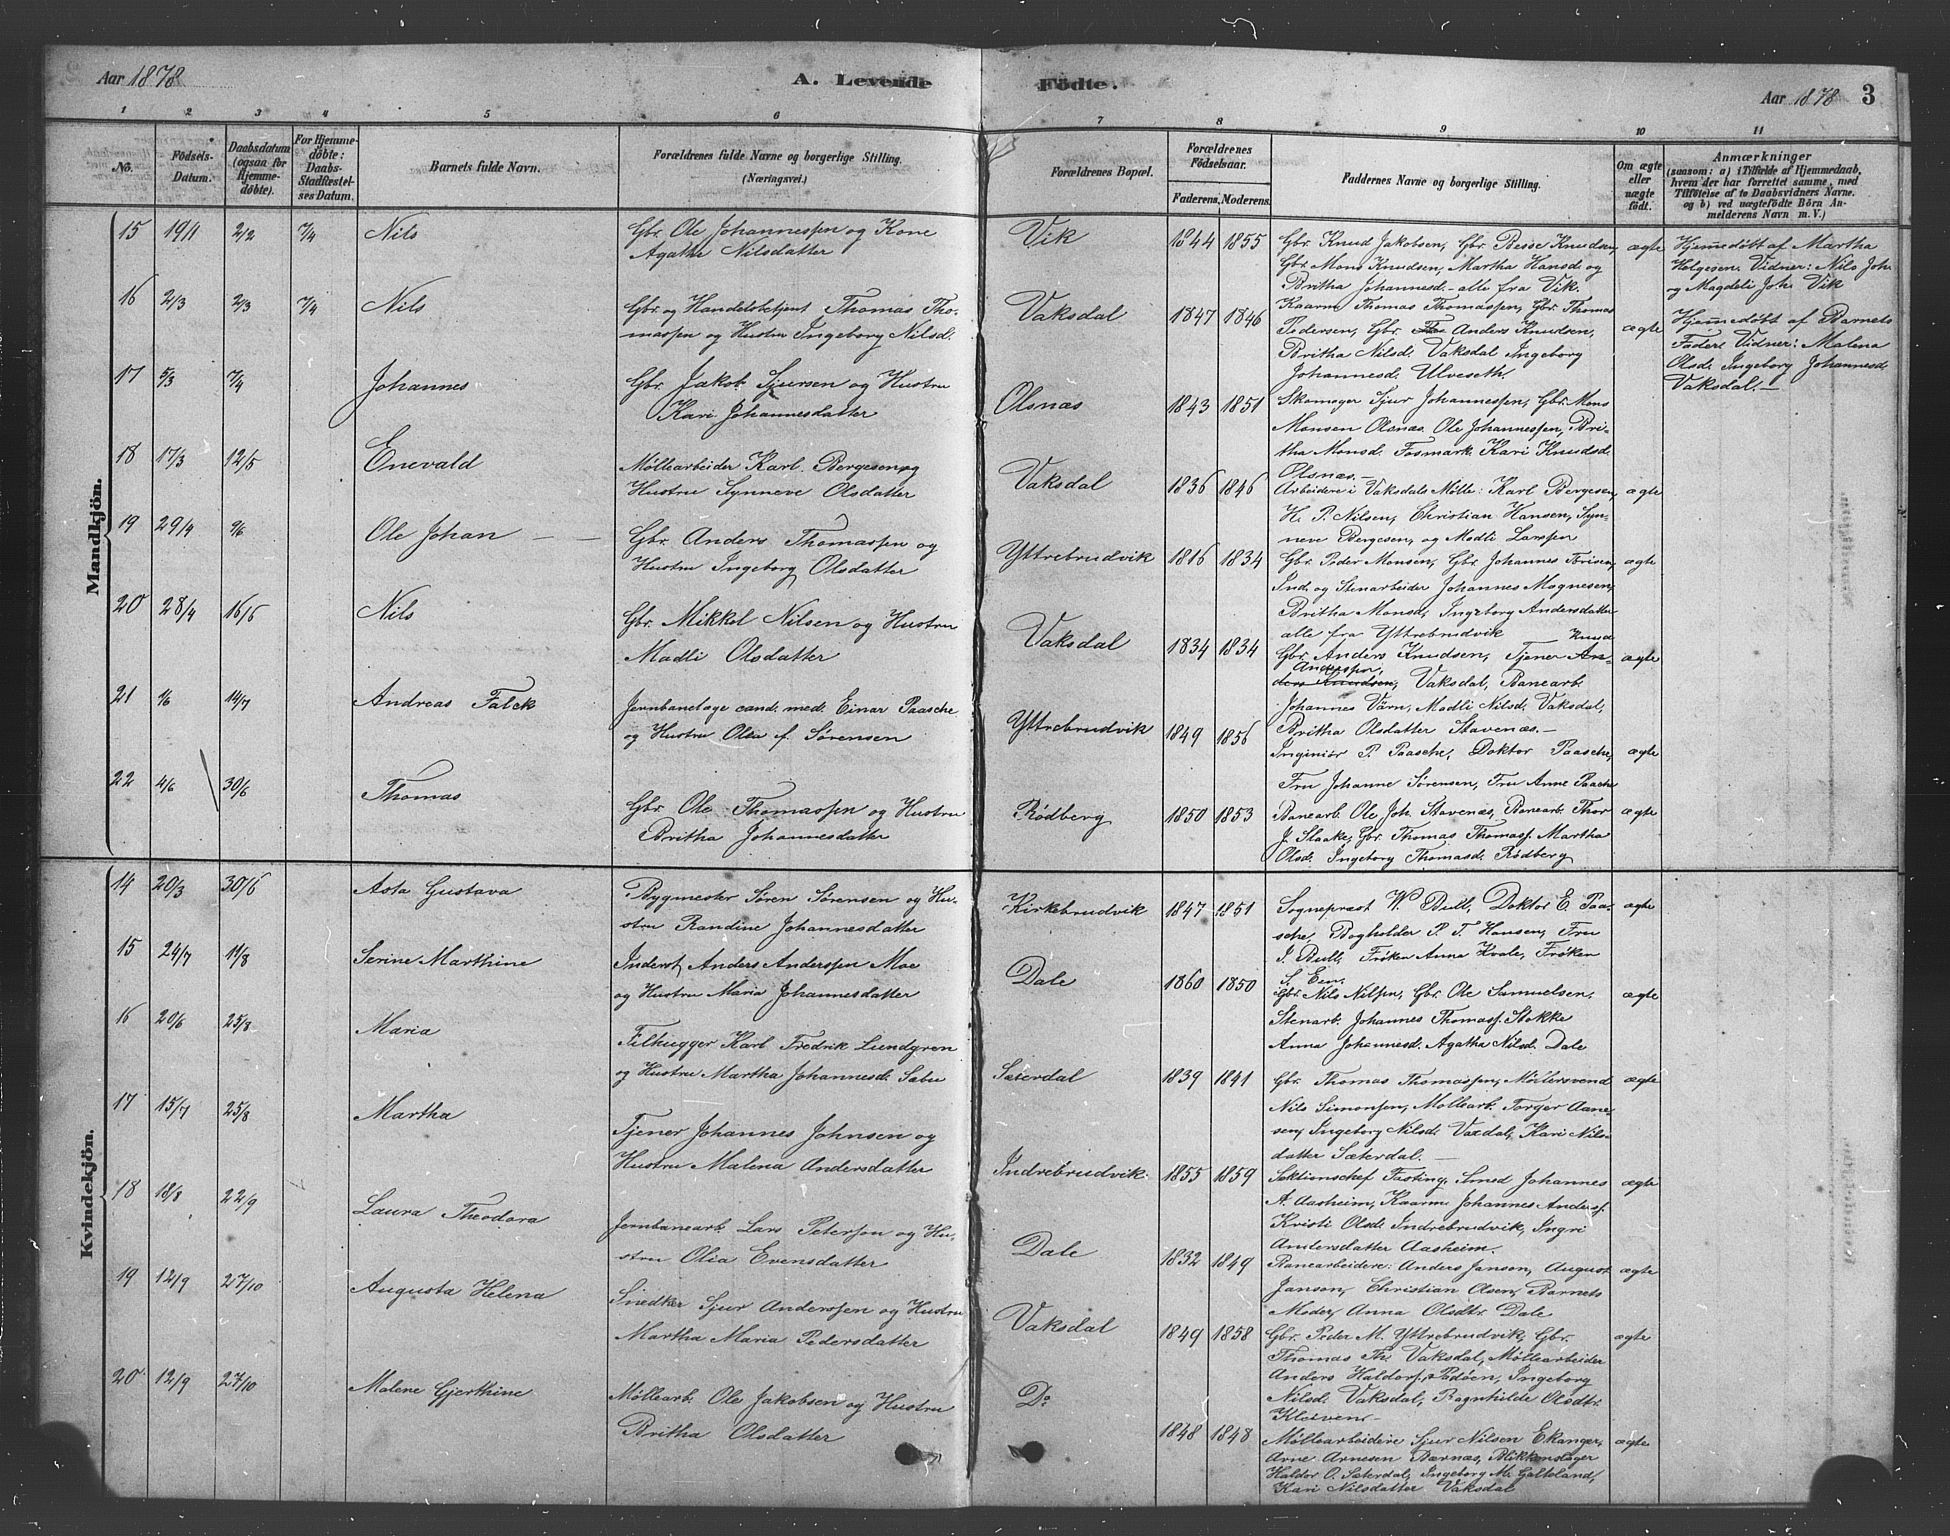 Aar 1878
A. Levende
Födte.
Aar 1878
3
1 2 3 4 5 6 7 8 9 10 11
No.
Födsels-
Datum.
Daabsdatum
(ogsaa for
Hjemme-
döbte).
For Hjemme-
döbte:
Daabs-
Stadfæstel-
ses Datum.
Barnets fulde Navn.
Forældrenes fulde Navne og borgerlige Stilling.
(Næringsvei.)
Forældrenes Bopæl.
Forældrenes
Födselsaar.
Faderens. Moderens.
Faddernes Navne og borgerlige Stilling.
Om ægte
eller
uægte
födt.
Anmærkninger
(saasom: a) i Tilfælde af Hjemmedaab,
hvem der har forrettet samme, med
Tilföielse af to Daabsvidners Navne.
og b) ved uægtefödte Börn An-
melderens Navn m. V.)
Mandkjön.
15 19/1 2/2 7/4 Nils
Gbr. Ole Johannessen og Kone
Agathe Nilsdatter
Vik 1844 1855
Gbr. Knud Jakobsen, Gbr. Besse Knudsen,
Gbr. Mons Knudsen, Martha Hansd. og
Britha Johannesd. alle fra Vik.
ægte
Hjemmedöbt af Martha
Helgesen. Vidner: Nils Joh.
og Magdeli Joh. Vik
16 2/3 2/3 7/4 Nils
Gbr. og Handelsbetjent Thomas Tho-
massen og Hustru Ingeborg Nilsd.
Vaksdal 1847 1846
Kaarm. Thomas Thomassen, Gbr. Thomas
Pedersen, Gbr. Anders Knudsen,
Britha Nilsd. Vaksdal Ingeborg
Johannesd. Ulveseth.
ægte
Hjemmedöbt af Barnets
Fader. Vidner: Malena
Olsd. Ingeborg Johannesd.
Vaksdal.
17 5/3 7/4 Johannes
Gbr. Jakob Sjursen og Hustru
Kari Johannesdatter
Olsnæs 1843 1851
Skomager Sjur Johannessen, Gbr. Mons
Monsen Olsnæs. Ole Johannessen, Bri-
tha Monsd. Fosmark. Kari Knudsd.
Olsnæs.
18 17/3 12/5 Enevald
Møllearbeider Karl Bergesen og
Hustru Synneve Olsdatter
Vaksdal 1836 1846
Arbeidere i Vaksdals Mølle: Karl Bergesen,
H. P. Nilsen, Christian Hansen, Syn-
neve Bergesen, og Madli Larssen
ægte
19 29/4 9/6 Ole Johan
Gbr. Anders Thomassen og
Hustru Ingeborg Olsdatter
Yttrebrudvik 1816 1834
Gbr. Peder Monsen, Gbr. Johannes
Ind. og Stenarbeider Johannes Magnesen,
Britha Monsd, Ingeborg Andersdatter
alle fra Yttrebrudvik
ægte
20 28/4 16/6 Nils
Gbr. Mikkel Nilsen og Hustru
Madli Olsdatter
Vaksdal 1834 1834
Gbr. Anders Knudsen, Tjener Knud
Anderssen, Vaksdal, Banearb.
Johannes Värn, Madli Nilsd. Vaksdal,
Britha Olsdatter Stavenæs.
ægte
21 1/6 14/7 Andreas Falck
Jernbanelæge cand. med. Einar Paasche
og Hustru Olea f. Sørensen
Yttrebrudvik 1849 1856
Ingeniör P. Paasche, Doktor Paasche,
Fru Johanne Sørensen, Fru Anne Paasche
ægte
22 4/6 30/6 Thomas
Gbr. Ole Thomassen og Hustru
Britha Johannesdatter
Rödberg 1850 1853
Banearb. Ole Joh. Stavenæs, Banearb. Thor
J. Slaake, Gbr. Thomas Thomass. Martha
Olsd. Ingeborg Thomasd. Rødberg
ægte
Kvindekjön.
14 20/3 30/6 Asta Gustava
Bygmester Sören Sörensen og Hu-
stru Randine Johannesdatter
Kirkebrudvik 1847 1851
Sognepræst W. Bull, Doktor E. Paa-
sche, Bogholder P. T. Hansen, Fru
I. Bull, Frøken Anna Kvale, Frøken
ægte
15 24/7 11/8 Serine Marthine
Inderst Anders Anderssen Moe
og Hustru Maria Johannesdatter
Dale 1860 1850
Gbr. Nils Nilssen, Gbr. Ole Samuelsen,
Stenarb. Johannes Thomass. Stokke
Anna Johannesd. Agatha Nilsd. Dale
ægte
16 20/6 25/8 Maria
Filhugger Karl Fredrik Lundgren
og Hustru Martha Johannesd.
Sæterdal 1839 1841
Gbr. Thomas Thomassen, Møllersvend
Nils Simonsen, Møllearb. Torger Aane-
sen, Ingeborg Nilsd. Vaxdal, Kari Nils-
datter Sæterdal.
ægte
17 15/7 25/8 Martha
Tjener Johannes Johnsen og
Hustru Malena Andersdatter
Indrebrudvik 1855 1859
Sektionschef Fasting, Smed Johannes
A. Aasheim, Kaarm. Johannes Anderss.
Kristi Olsd. Indrebrudvik, Ingri
Andersdatter Aasheim.
ægte
18 18/8 22/9 Laura Theodora
Jernbanearb. Lars Peterson og Hu-
stru Olia Evensdatter
Dale 1832 1849
Banearbeidere: Anders Janson, August
Janson, Christian Olsen, Barnets
Moder, Anna Olsdtr. Dale
ægte
19 12/9 27/10 Augusta Helena
Snedker Sjur Anderssen og Hustru
Martha Maria Pedersdatter
Vaksdal 1849 1858
Gbr. Peder M. Yttrebrudvik, Gbr.
Thomas Th. Vaksdal, Møllearbeider
Anders Haldors. Ingeborg
Nilsd. Vaksdal, Ragnhilde Olsdtr.
ægte
20 12/9 27/10 Malene Gjerthine
Møllearb. Ole Jakobsen og Hustru
Britha Olsdatter
Do 1848 1848
Møllearbeidere Sjur Nilsen Ekanger,
Arne Arnesen Bærnæs, Blikkenslager
Haldor O. Sæterdal, Ingeborg M. Galteland,
Kari Nilsdatter Vaksdal
ægte